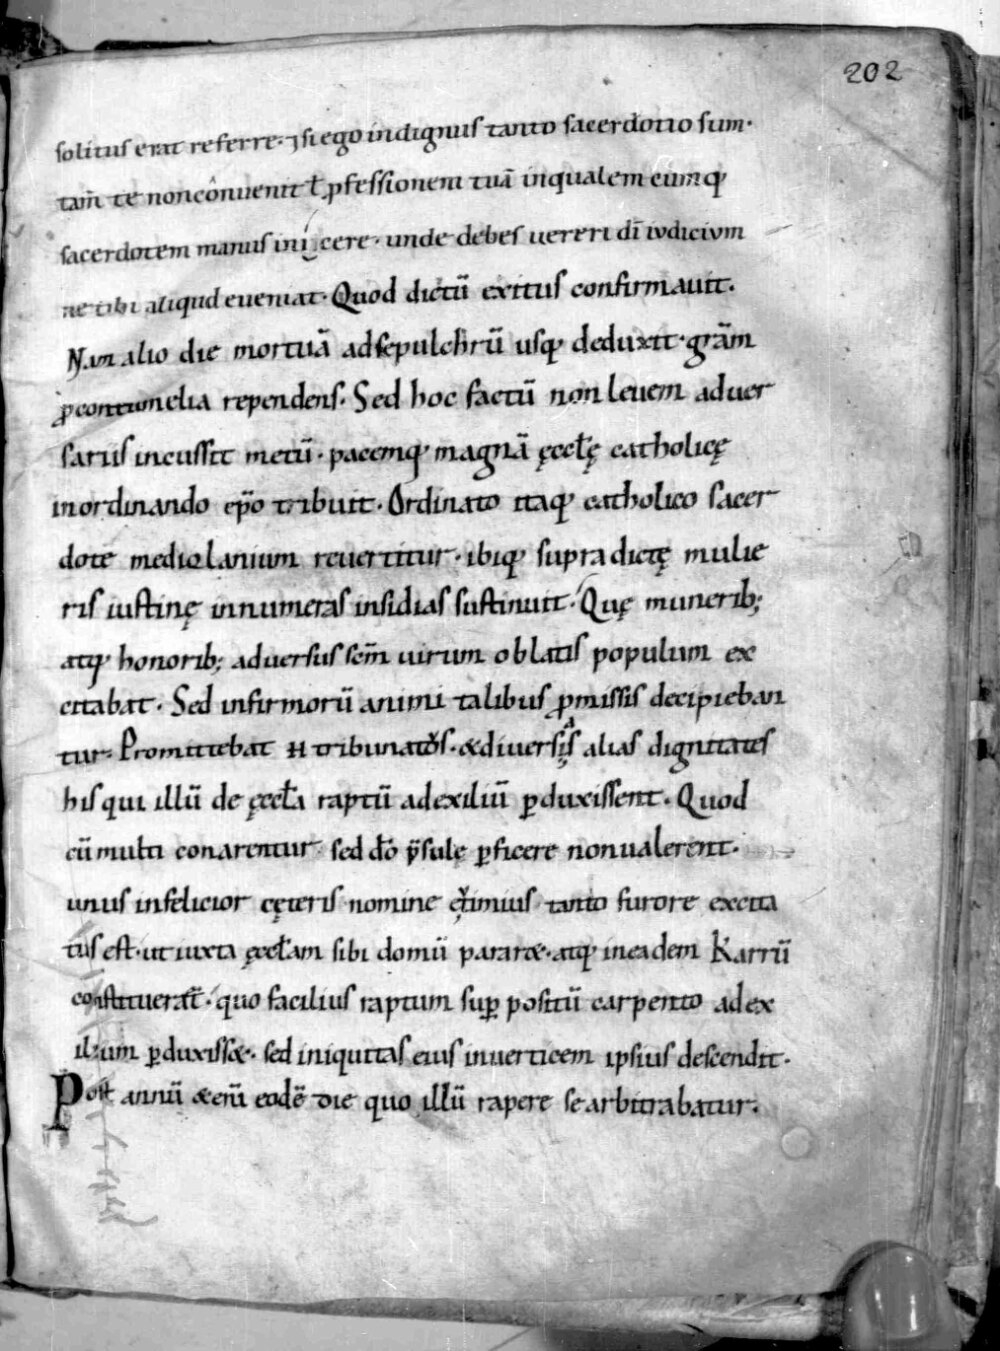 202
solitus erat referre· ⁊ si ego indignus tanto sacerdotio sum·
tam̄ te non conuenit ł ꝓfessionem tuā in qualem cumq;
sacerdotem manus inijcere· unde debes uereri dī iudicium
ne tibi aliqud eueniat· Quod dictū exitus confirmauit.
Nam alio die mortuā ad sepulchrū usq; deduxit· grām
ꝓ contumelia rependens. Sed hoc factū non leuem aduer
sariis incussit metū· pacemq; magnā ęccłę catholicę
in ordinando ep̄o tribuit· Ordinato itaq; catholico sacer
dote mediolanium reuertitur· ibiq; supra dictę mulie
ris iustinę innumeras insidias sustinuit· Quę munerib;
atq; honorib; aduersus sc̄m uirum oblatis populum ex
citabat· Sed infirmorū animi talibus ꝓmissis decipieban
tur· Promittebat n̄ tribunatus· & diuersas alias dignitates
his qui illū de ęccła raptū ad exiliū ꝑduxissent· Quod
cū multi conarentur sed dō p̄sule ꝑficere non ualerent·
unus infelicior cęteris nomine eutimius tanto furore excita
tus est· ut iuxta ęccłam sibi domū pararet· atq; in eadem Karrū
constitueret· quo facilius raptum suꝑ positū carpento ad ex
ilium ꝑduxisset· sed iniquitas eius in uerticem ipsius descendit·
Post annū & enī eodē die quo illū rapere se arbitrabatur.